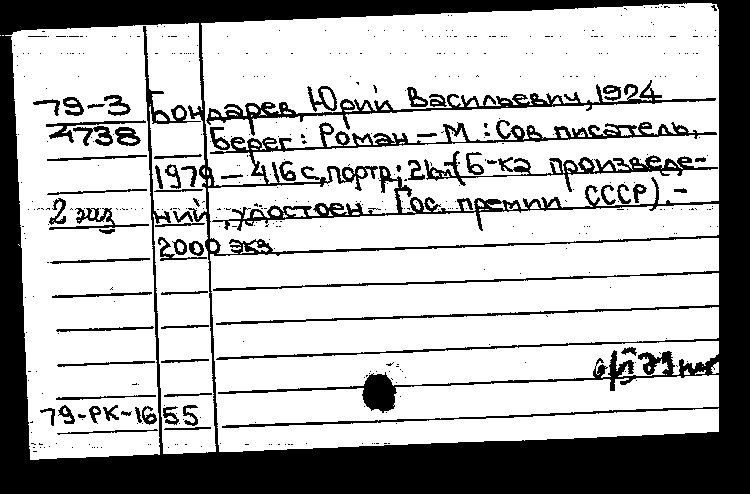 79-3 Бондарев, Юрий Васильевич, 1924
4738 Берег: Роман. – М.: Сов писатель,
1979 – 416 с, портр; (Б-ка произведе-
2 экз ний, удостоен. Гос. премии СССР). –
2000 экз.
79-РК-1655